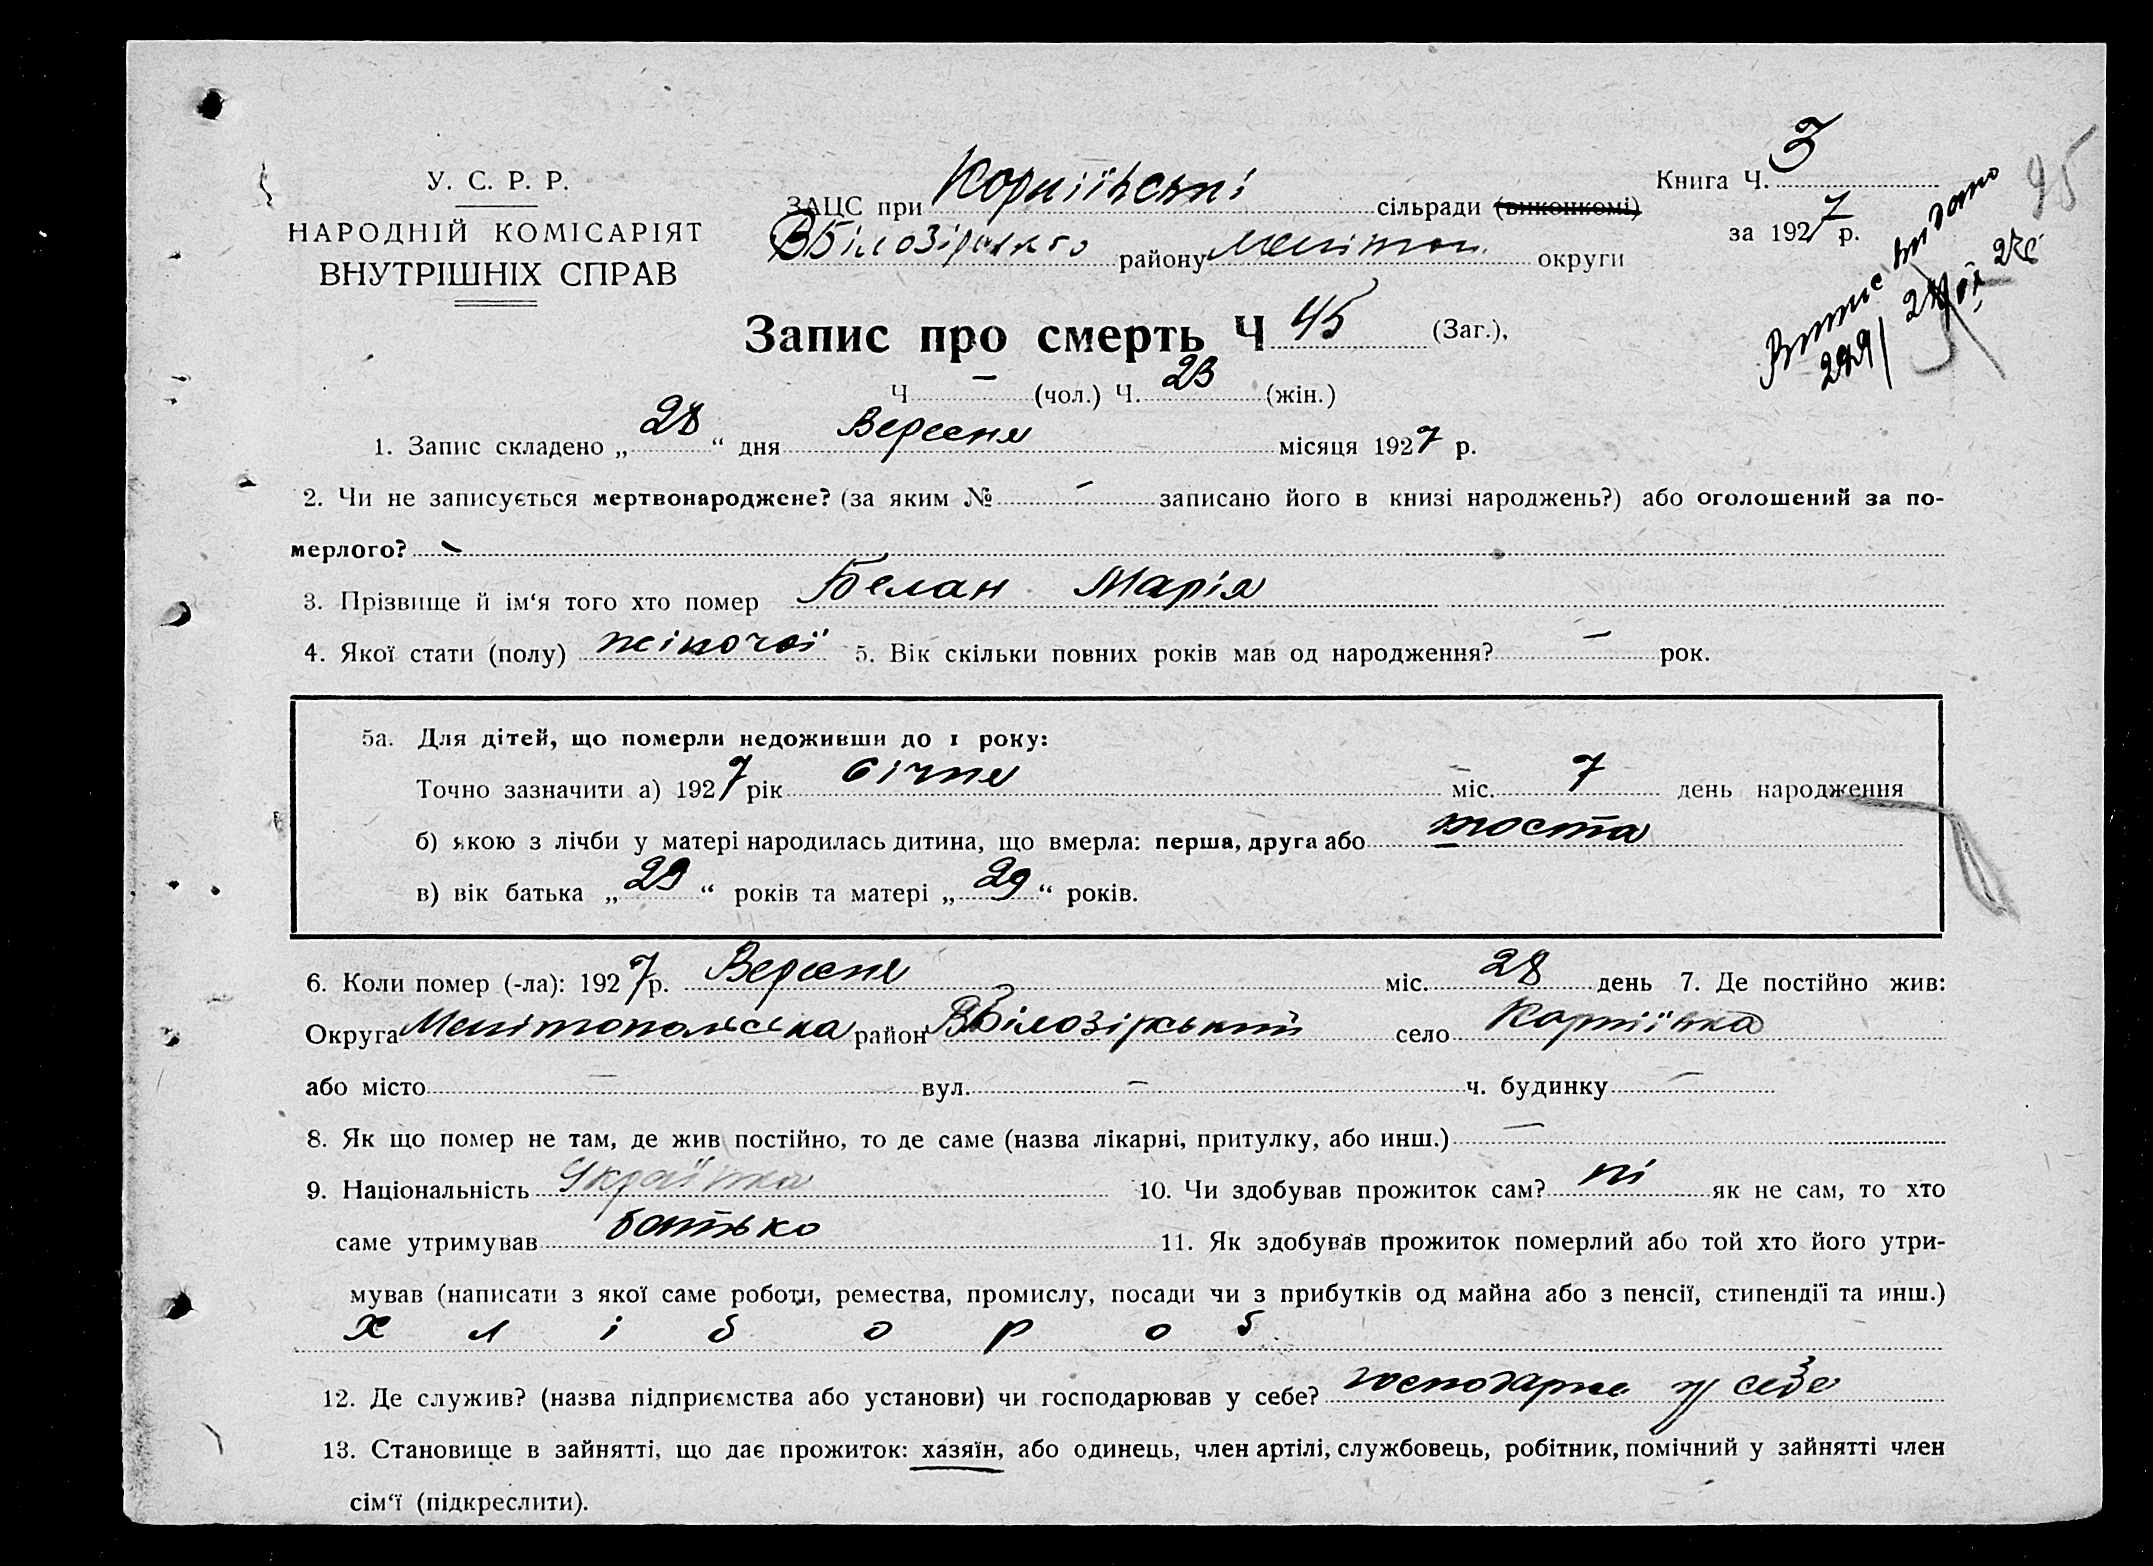 У. С. Р. Р.
НАРОДНІЙ КОМІСАРІЯТ
ВНУТРІШНІХ СПРАВ
ЗАЦС при Корніївські сільради (виконкомі)
ВБілозірського району Меліто́п. округи
Книга Ч. 3
за 1927 р.
95
Випис видано
Запис про смерть Ч 45 (Заг.),
Ч — (чол.) Ч. 23 (жін.)
1. Запис складено „ 28 “ дня Вересня місяця 1927 р.
2. Чи не записується мертвонароджене? (за яким № - записано його в книзі народжень?) або оголошений за по-
мерлого? -
3. Прізвище й ім‘я того хто помер Белан Марія
4. Якої стати (полу) жіночої 5. Вік скільки повних років мав од народження? — рок.
5а. Для дітей, що померли недоживши до 1 року:
Точно зазначити а) 1927 рік січня міс. 7 день народження
б) якою з лічби у матері народилась дитина, що вмерла: перша, друга або шоста
в) вік батька „ 29 “ років та матері „ 29 “ років.
6. Коли помер (-ла): 1927 р. Вересня міс. 28 день 7. Де постійно жив:
Округа Мелітопольська район ВБілозірський село Корніївка
або місто — вул. — ч. будинку —
8. Як що помер не там, де жив постійно, то де саме (назва лікарні, притулку, або инш.) —
9. Національність Українка 10. Чи здобував прожиток сам? ні як не сам, то хто
саме утримував батько 11. Як здобував прожиток померлий або той хто його утри-
мував (написати з якої саме роботи, ремества, промислу, посади чи з прибутків од майна або з пенсії, стипендії та инш.)
Х л і б о р о б
12. Де служив? (назва підприємства або установи) чи господарював у себе? господарює у себе
13. Становище в зайнятті, що дає прожиток: хазяїн, або одинець, член артілі, службовець, робітник, помічний у зайнятті член
сім‘ї (підкреслити).